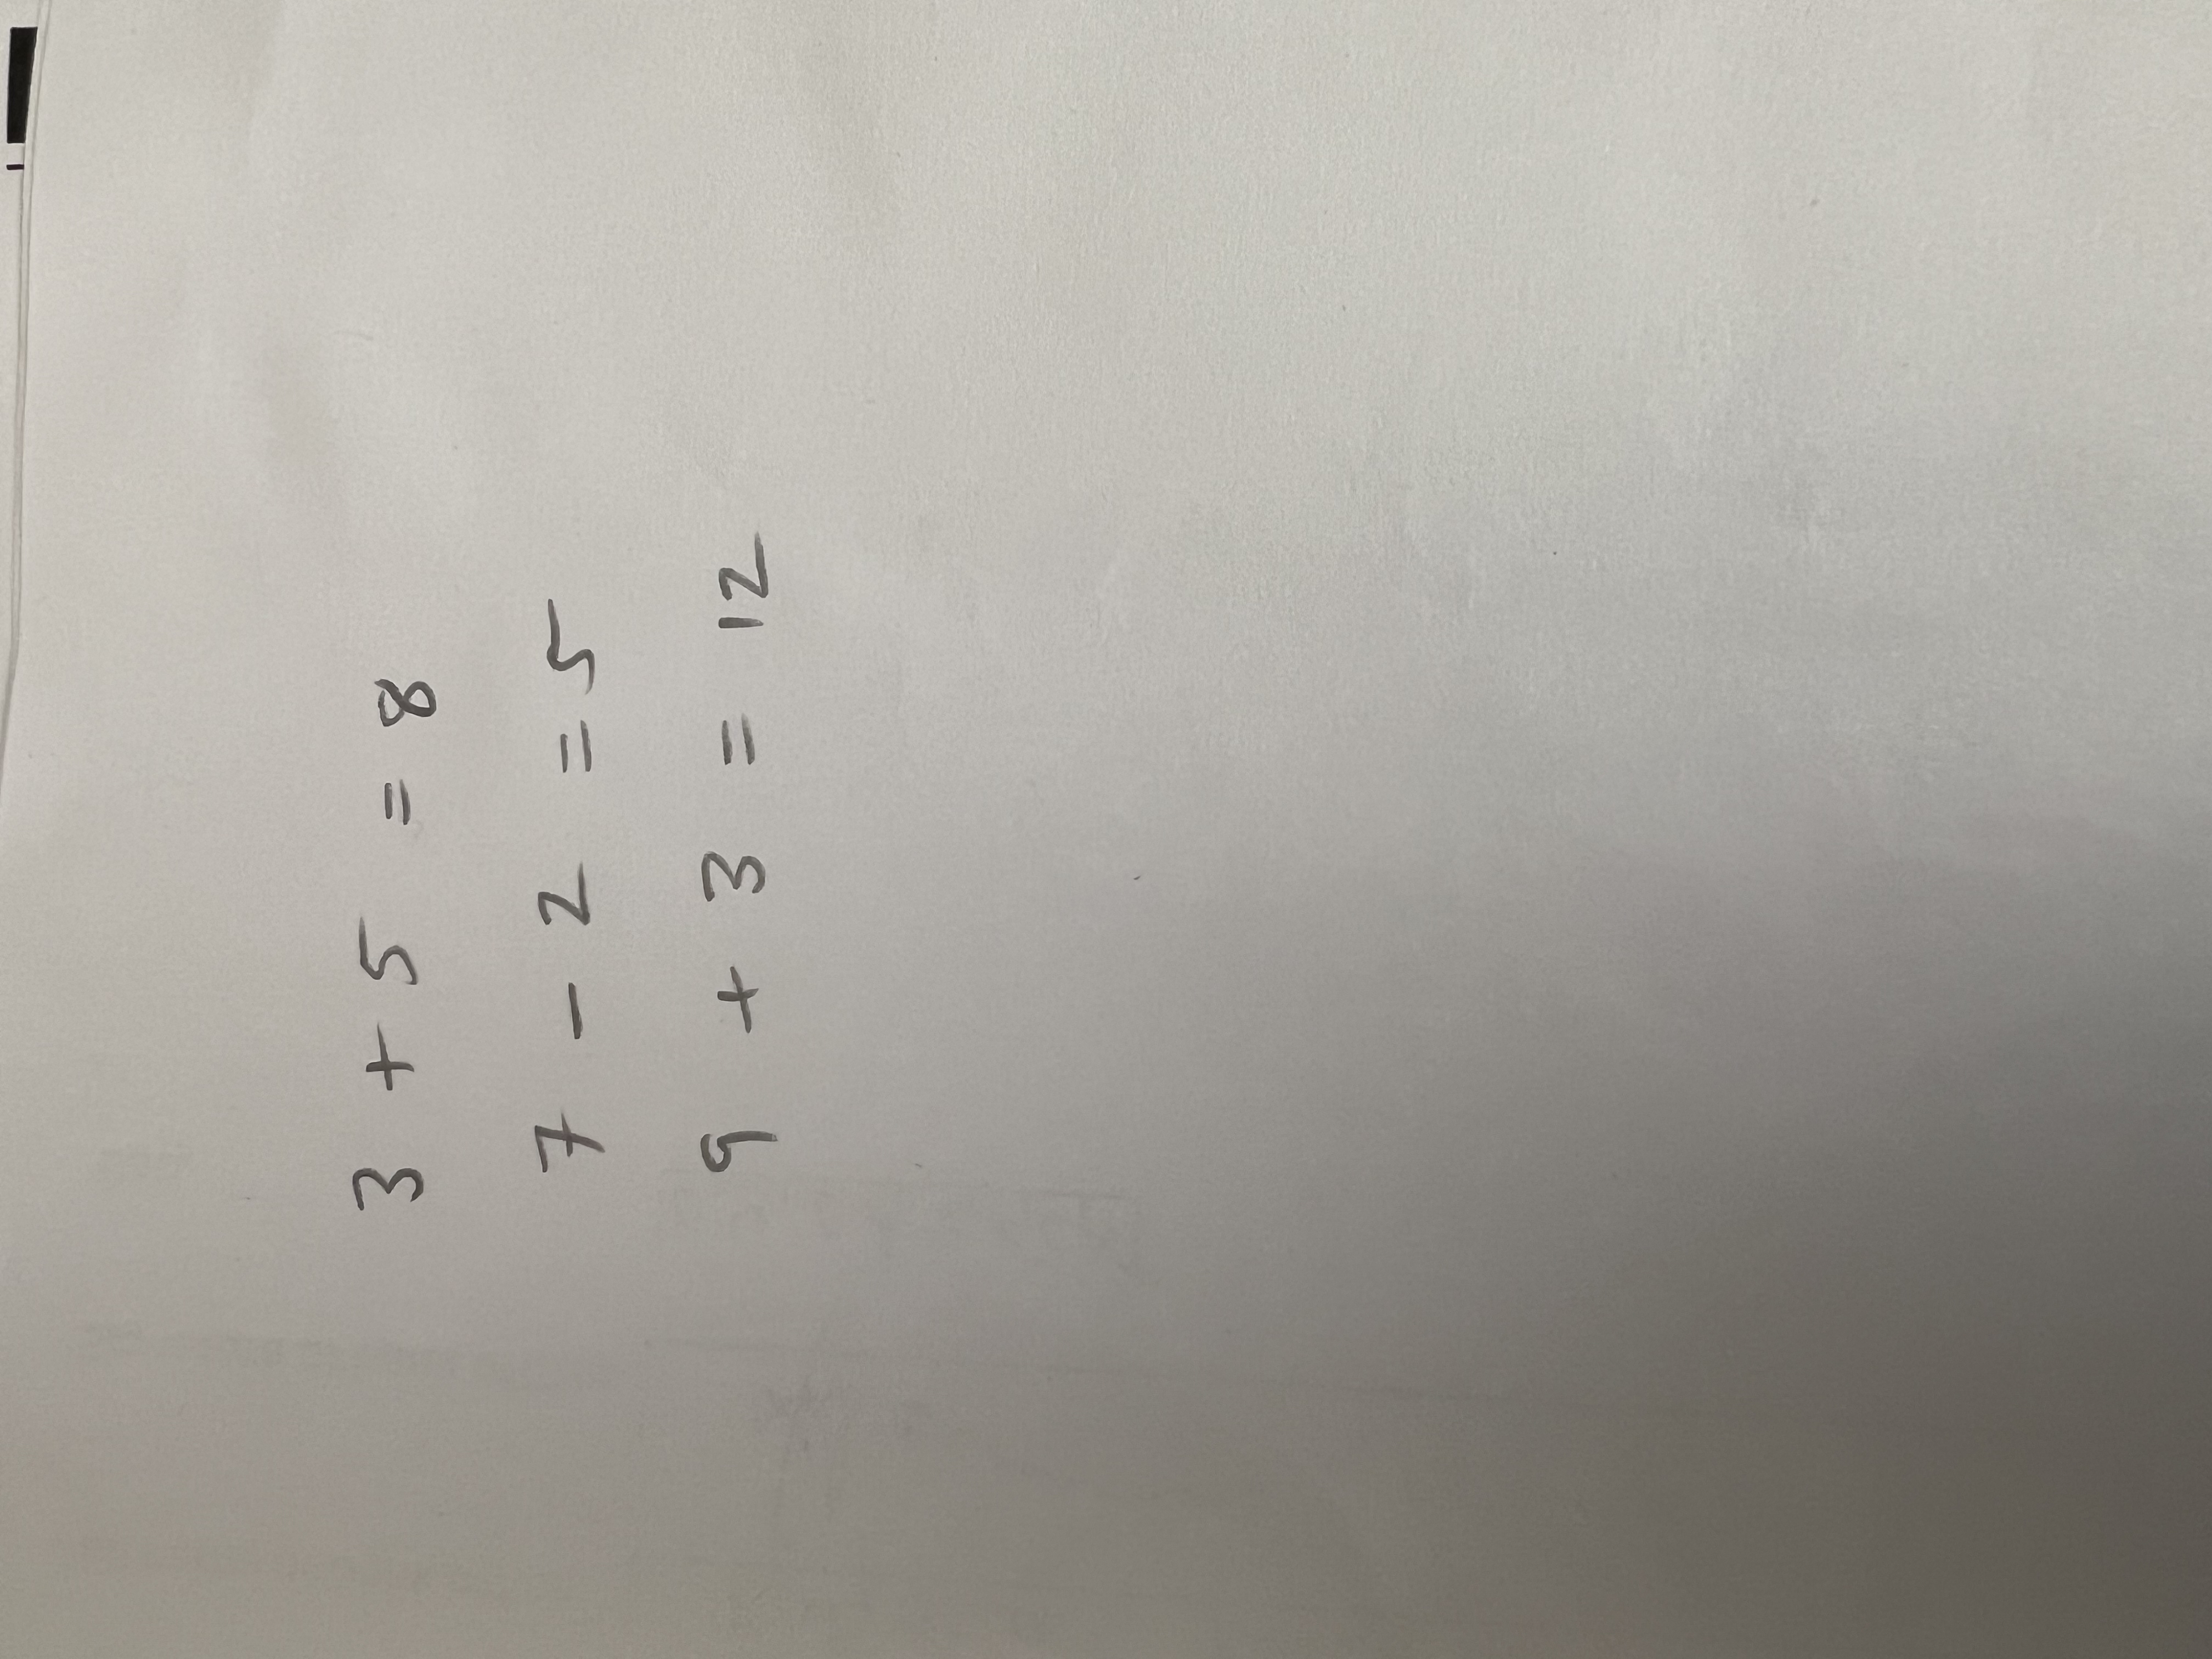 3 + 5 = 8
7 - 2 = 5
9 + 3 = 12